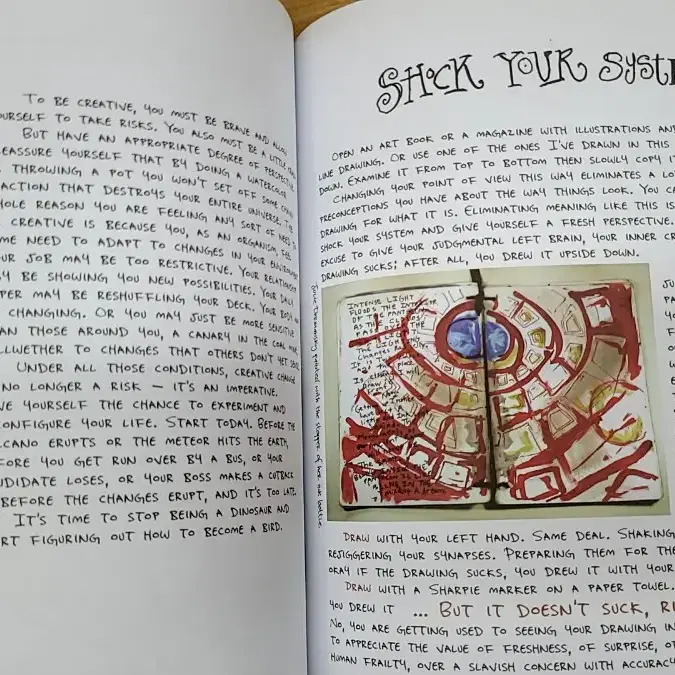 TO BE CREATIVE, YOU MUST BE BRAVE AND ALLOW
YOURSELF TO TAKE RISKS. YOU ALSO MUST BE A LITTLE
BUT HAVE AN APPROPRIATE DEGREE OF PERSPECTIVE
REASSURE YOURSELF THAT BY DOING A WATERCOLOR
THROWING A POT YOU WON'T SET OFF SOME CHAIN
ACTION THAT DESTROYS YOUR ENTIRE UNIVERSE. THE
HOLE REASON YOU ARE FEELING ANY SORT OF NEED TO
CREATIVE IS BECAUSE YOU, AS AN ORGANISM, FEEL
ME NEED TO ADAPT TO CHANGES IN YOUR ENVIRONMENT
UR JOB MAY BE TOO RESTRICTIVE. YOUR RELATIONSHIP
Y BE SHOWING YOU NEW POSSIBILITIES. YOUR DAILY
PER MAY BE RESHUFFLING YOUR DECK. YOUR BODY
CHANGING. OR YOU MAY JUST BE MORE SENSITIVE
AN THOSE AROUND YOU, A CANARY IN THE COAL MINE,
LLWETHER TO CHANGES THAT OTHERS DON'T YET SENSE.
UNDER ALL THOSE CONDITIONS, CREATIVE CHANGE
NO LONGER A RISK — IT'S AN IMPERATIVE.
VE YOURSELF THE CHANCE TO EXPERIMENT AND
CONFIGURE YOUR LIFE. START TODAY. BEFORE THE
LCANO ERUPTS OR THE METEOR HITS THE EARTH,
FORE YOU GET RUN OVER BY A BUS, OR YOUR
NDIDATE LOSES, OR YOUR BOSS MAKES A CUTBACK
BEFORE THE CHANGES ERUPT, AND IT'S TOO LATE.
IT'S TIME TO STOP BEING A DINOSAUR AND
RT FIGURING OUT HOW TO BECOME A BIRD.
SHOCK YOUR SYSTE
OPEN AN ART BOOK OR A MAGAZINE WITH ILLUSTRATIONS AND
LINE DRAWING. OR USE ONE OF THE ONES I'VE DRAWN IN THIS
DOWN. EXAMINE IT FROM TOP TO BOTTOM THEN SLOWLY COPY IT
CHANGING YOUR POINT OF VIEW THIS WAY ELIMINATES A LOT
PRECONCEPTIONS YOU HAVE ABOUT THE WAY THINGS LOOK. YOU CA
DRAWING FOR WHAT IT IS. ELIMINATING MEANING LIKE THIS IS
SHOCK YOUR SYSTEM AND GIVE YOURSELF A FRESH PERSPECTIVE.
EXCUSE TO GIVE YOUR JUDGMENTAL LEFT BRAIN, YOUR INNER CR
DRAWING SUCKS; AFTER ALL, YOU DREW IT UPSIDE DOWN.
INTENSE LIGHT
FLOODS THE INTERIOR
OF THE PANTHEON
AS THE CLOUDS
PASS OVER THE
DRAW WITH YOUR LEFT HAND. SAME DEAL. SHAKING
REJIGGERING YOUR SYNAPSES. PREPARING THEM FOR THE
OKAY IF THE DRAWING SUCKS, YOU DREW IT WITH YOUR
DRAW WITH A SHARPIE MARKER ON A PAPER TOWEL.
YOU DREW IT ... BUT IT DOESN'T SUCK, RI
NO, YOU ARE GETTING USED TO SEEING YOUR DRAWING IN
TO APPRECIATE THE VALUE OF FRESHNESS, OF SURPRISE, OF
HUMAN FRAILTY, OVER A SLAVISH CONCERN WITH ACCURAC